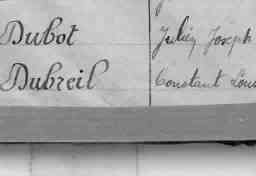 Dubot Julien Joseph
Dubreil Constant Loui